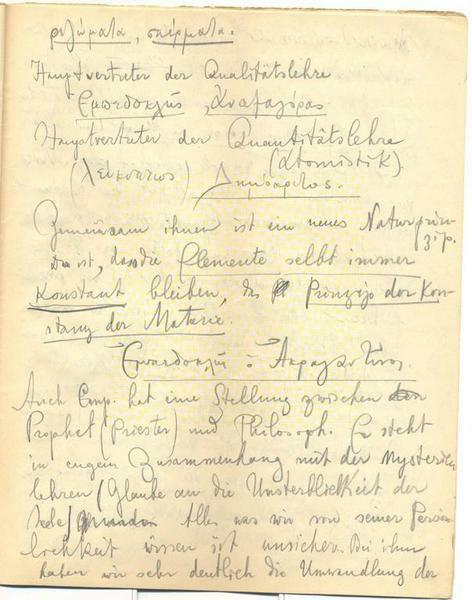 ριζώματα, σπέρματα.
Hauptvertreter der Qualitätslehre
Εμπεδοκλῆς, Ἀναξαγόρας
Hauptvertreter der Quantitätslehre
(Atomistik).
(Λεύκιππος) Δημόκριτος.
Gemeinsam ihnen ist ein neues Naturprin-
zip.
Das ist, dass die Elemente selbst immer
Konstant bleiben, das Prinzip der Kon-
stanz der Materie.
Ἐμπεδοκλῆς ὁ Ἀκραγαντῖνος.
Auch Emp. hat eine Stellung zwischen
Prophet (Priester) und Philosoph. Er steht
in engem Zusammenhang mit der Mysterien
lehren (Glaube an die Unsterblichkeit der
Seele) Alles was wir von seiner Persön
lichkeit wissen ist unsicher. Bei ihm
haben wir sehr deutlich die Umwandlung der